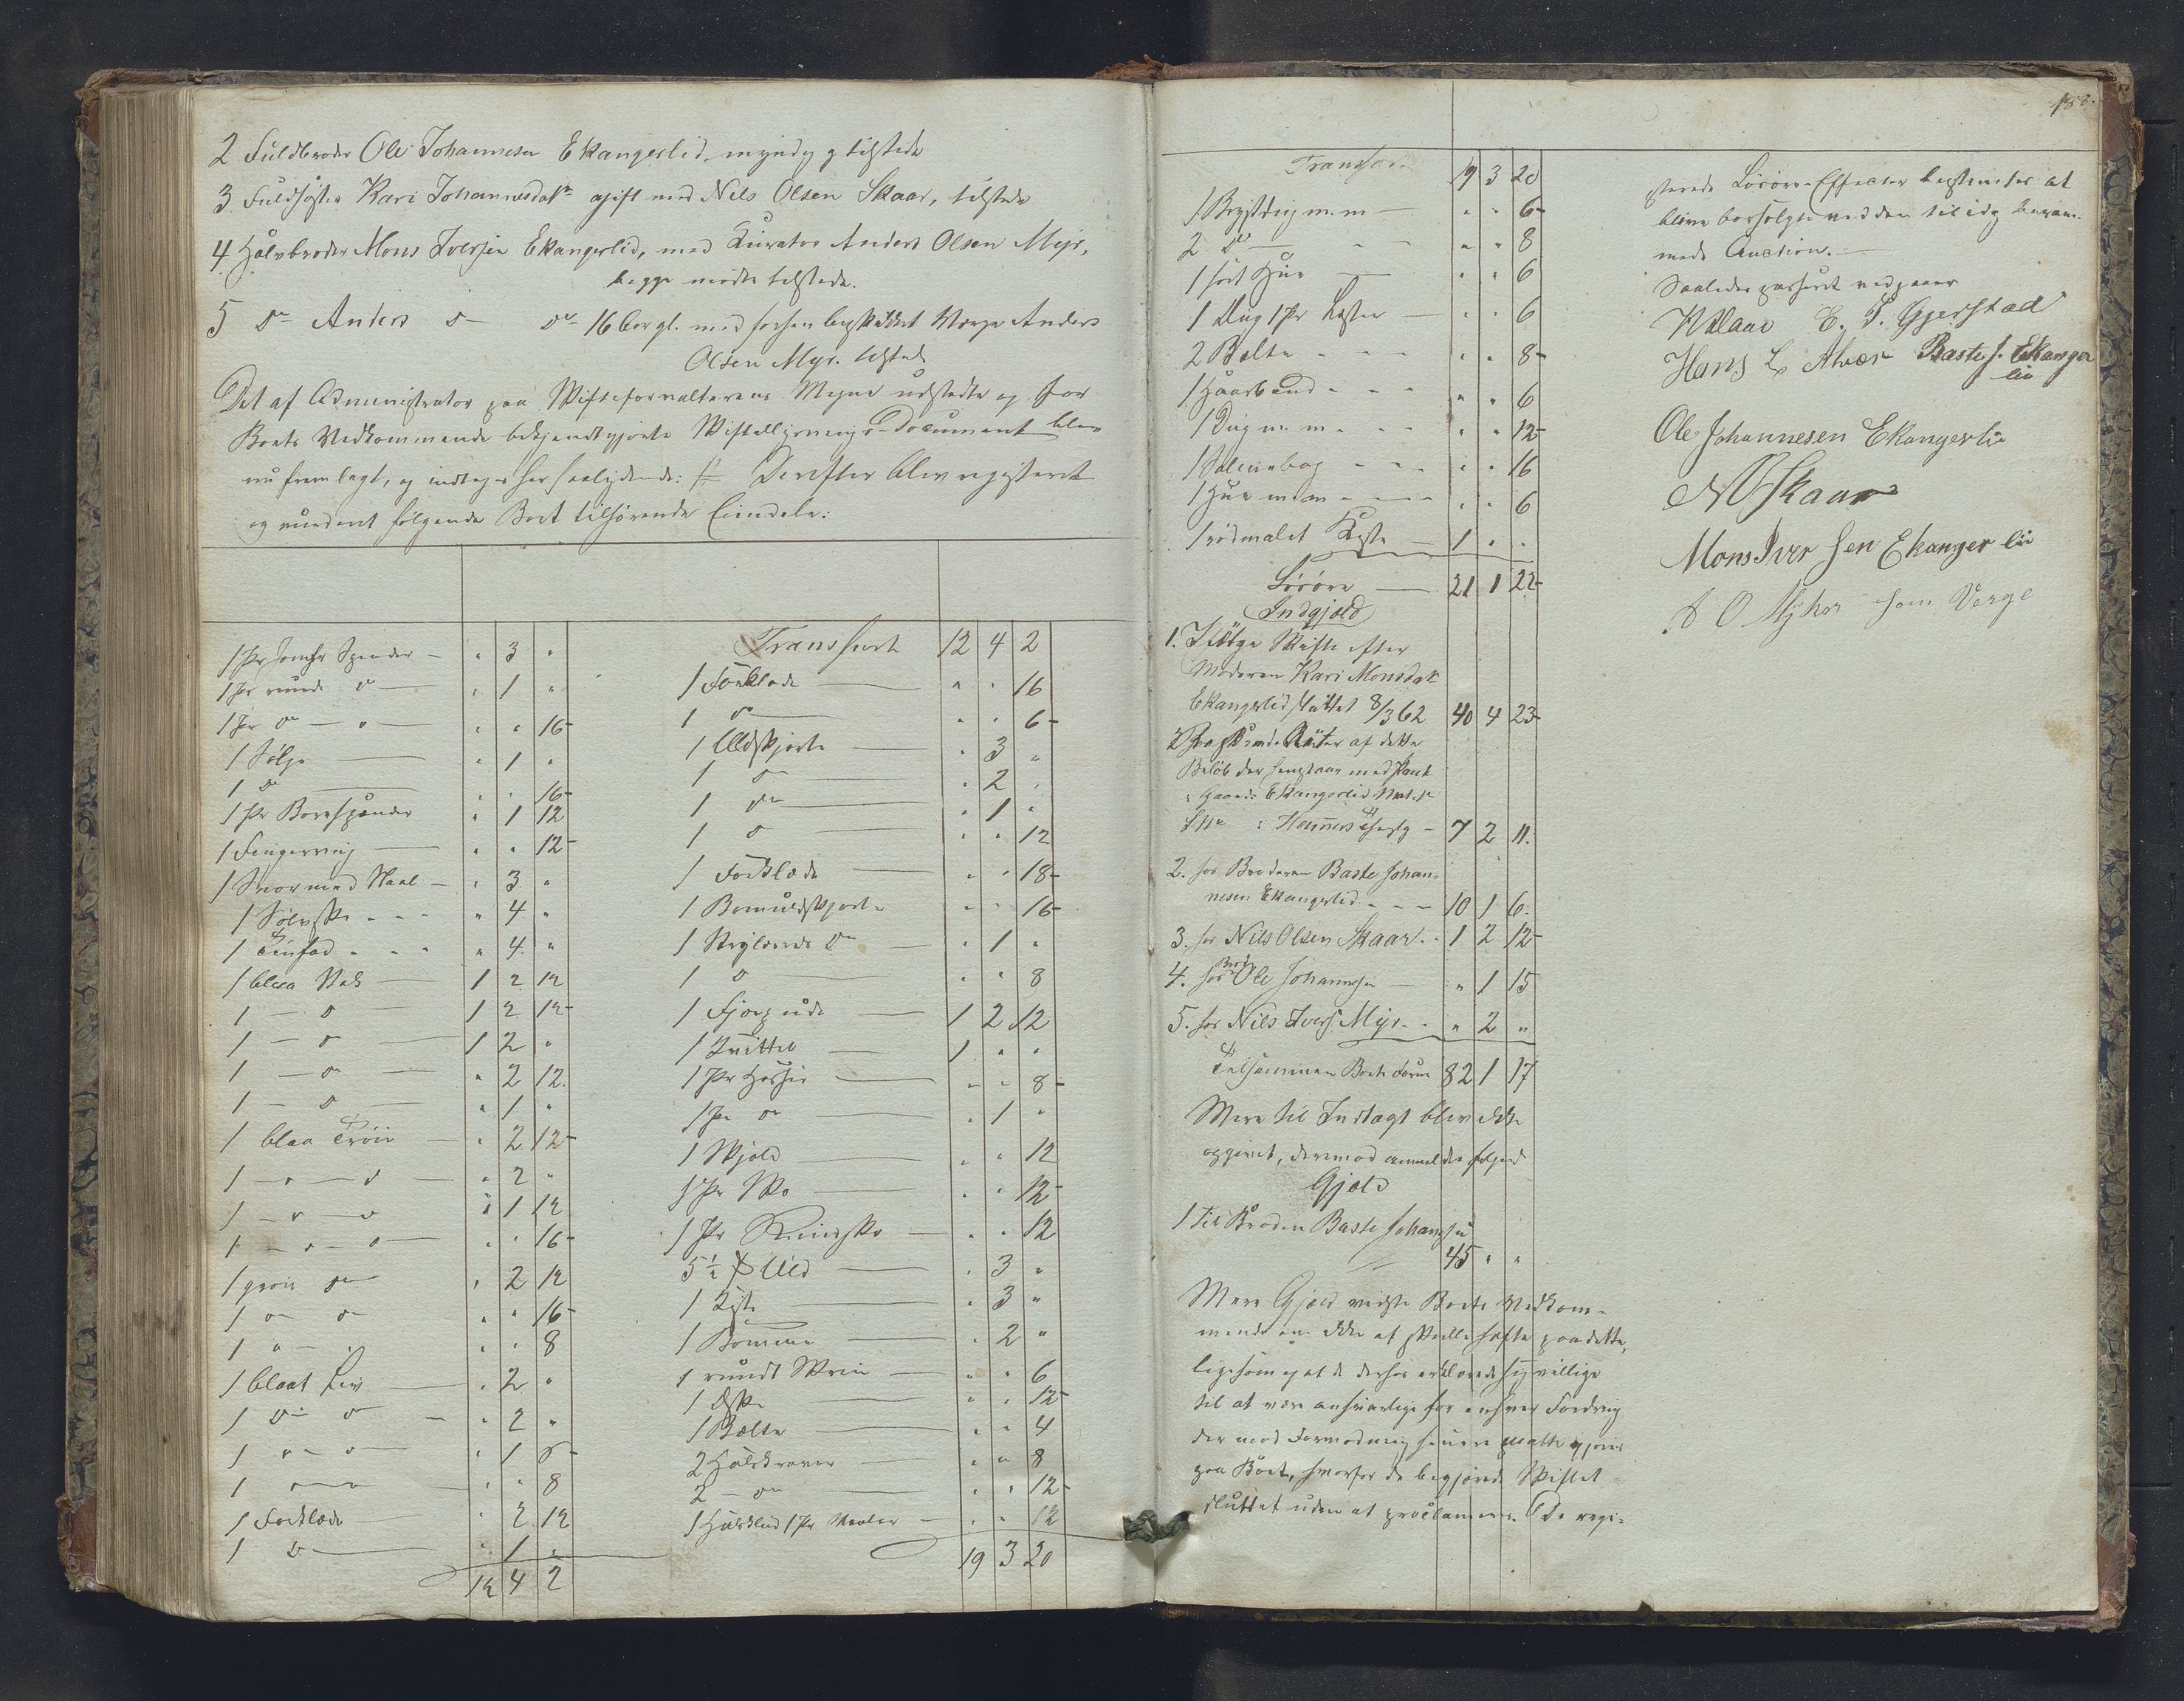 2 Fuldbroder Ole Johannesen Ekangerlid, myndig og tilstede
3 Fuldsøster Kari Johannesdatr gift med Nils Olsen Skaar, tilstede
4 Halvbroder Mons Iversen Ekangerlid, med Kurator Anders Olsen Myr,
begge mødte tilstede.
5 Do Anders Do Do 16 Aar gl. med forhen beskikket Værge Anders
Olsen Myr. tilstede
Det af Administrator paa Skifteforvalterens Vegne udstedte og for
Boets Vedkommende bekjendtgjorte Skiftesamlings-Document blev
nu fremlagt, og indtages her saalydende: // Derefter blev registeret
og vurderet følgende Boet tilhørende Eiendele:
1 Pr Spender - " 3 "
1 Pr runde Do - " 1 "
1 Pr Do - " - " " 16-
1 Sølge " 1 "
1 Do " " 16-
1 Pr Borespænder " 1 12
1 Fingerring " " 12-
1 Snor med Naal - " 3 "
1 Sølvske - - - " 4 "
1 Tinfad - - - " 4 "
1 blaa Stak 1 2 12
1 - Do 1 2 12-
1 - Do 1 2 "
1 - Do " 2 12.
1 - Do " 1 "
1 blaa Trøie " 2 12-
1 - " - Do " 2 "
1 - " - Do " 1 12
1 - " - Do " " 16-
1 grøn Do " 2 12
1 Do Do " " 16-
1 " - " " 8
1 blaat Liv " 2 "
1 Do Do - " 2 "
1 " - " " 1 8-
1 " - " " " 8
1 Forklæde " 2 12
1 Do " 1 "
12 4 2
Transport 12 4 2
1 Forklæde " " 16
1 Do " " 6-
1 Uldskjorte " 3 "
1 Do " 2 "
1 Do " 1 "
1 Do " " 12
1 Forklæde " " 18-
1 Bomuldskjorte " " 16-
1 Do " 1 "
1 Do " " 8
1 1 2 12
1 Kvittel 1 " "
1 Pr Hoser " " 8-
1 Pr Do " 1 "
1 Skjold " " 12
1 Pr Sko " " 12-
1 Pr Skindsko " " 12
5½ ℔ Uld " 3 "
1 Kiste " 3 "
1 Bomme " 2 "
1 rundt Skrin " " 6
1 Æske " " 12-
1 Bælte " " 4
2 Halskraver " " 8
2 - Do " " 12-
1 Halsklud 1 Pr Vanter - " " 12
19 3 20
158.
Transport 19 3 20
1 Brystdug m. m - " " 6-
2 Do - " " 8
1 sort Hue " " 6
1 Dug 1 Pr " " 6
2 Bælte - - - " " 8-
1 Haarbaand - - - " " 6
1 Dug m. m - - - " " 12-
1 Salmebog - - - " " 16
1 Hue m. m - - - " " 6
1 rødmalet Kiste 1 " "
Løsøre 21 1 22-
Indgjæld
1. Ifølge Skifte efter
Moderen Kari Monsdatr
Ekangerlid sluttet 8/3 62 40 4 23-
Renter af dette
Beløb der henstaar med Pant
i Gaarden Ekangerlid Matr. No
7 2 11.
2. hos Broderen Baste Johan-
nesen Ekangerlid - - - 10 1 6-
3. hos Nils Olsen Skaar. - 1 2 12-
4. hos Brod. Ole Johannesen " 1 15
5. hos Nils Ivers. Myr. - " 2 "
Tilsammen Boets Formue 82 1 17
Mere til Indtægt blev ikke
opgivet, derimod anmeldes følgende
Gjæld
1 Til Broderen Baste Johannesen
45 " "
Mere Gjæld vidste Boets Vedkom-
mende ikke at skulle hefte paa dette,
ligesom og at de derfor erklærede sig villige
til at være ansvarlige for enhver Fordring
der mod Formodning senere maatte gjøres
paa Boet, hvorfor de begjærede Skiftet
sluttet uden at proclameres. De regi-
sterede Løsøre-Effecter bestemtes at
blive bortsolgte ved den til idag beram-
mede Auction.-
Saaledes passeret vedgaaes
Klaar E. T. Gjerstad
Hans L. Alver Baste J. Ekanger
lie
Ole Johannesen Ekangerlie
N O Skaar
Mons Iver sen Ekanger lie
A O Myhr som Verge